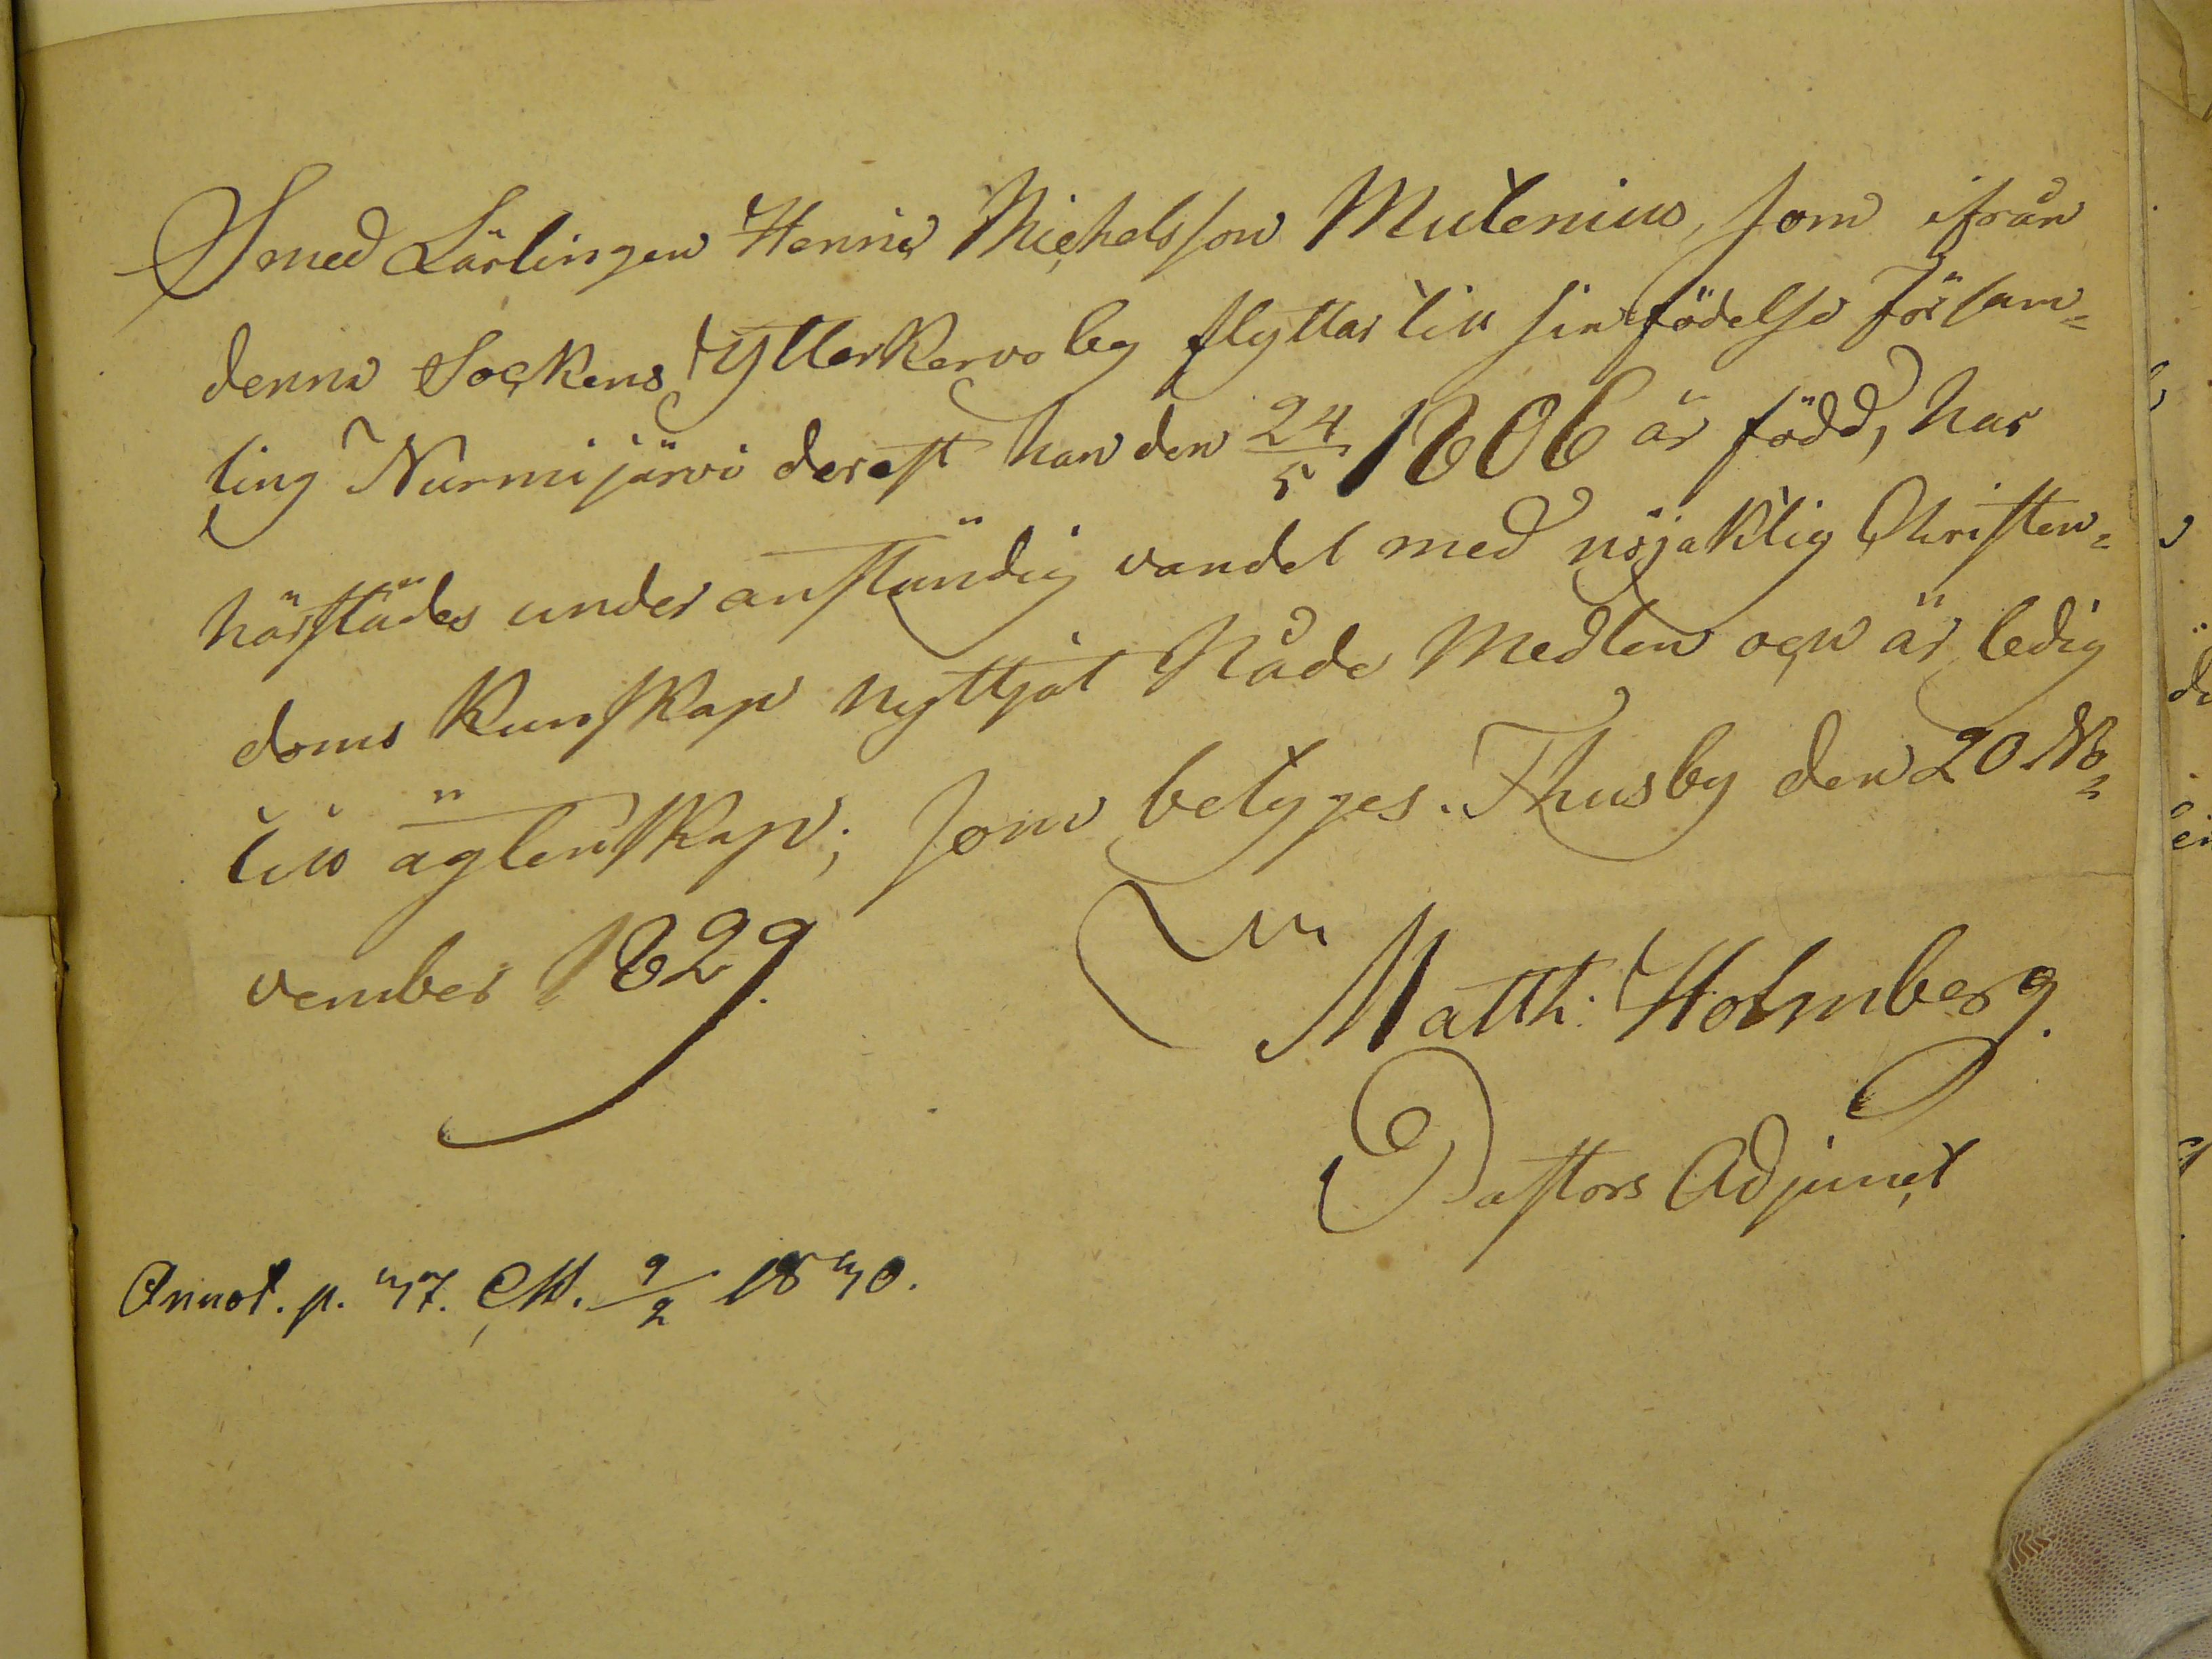 Smed Lärlingen Henric Michelsson Mulenius, som ifrån
denna Sockens Ytterkervo by flyttar till sin födelse Försam=
ling Nurmijärvi derest han den 24/5 1806 är född, har
härstädes under anständig vandel med nöjaktig Christen=
doms Kunskap nyttjat Nåde Medlen och är ledig
till ägtenskap; som betyges. Thusby den 20 No=
vember 1829.
Matth: Holmberg.
Pastors Adjunct
Annot. p. 37. 9/2 1830.